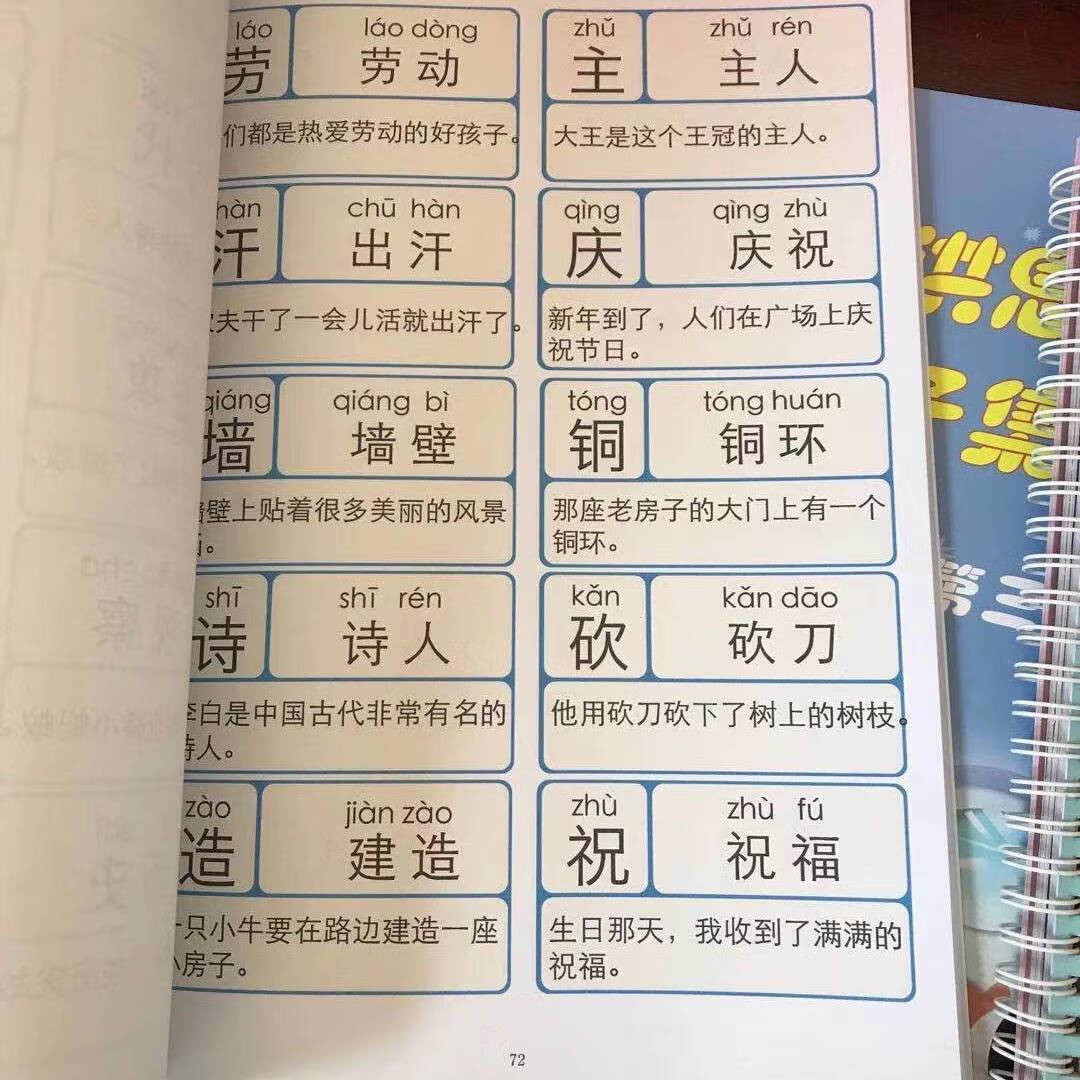 láo láo dòng
劳 劳动
们都是热爱劳动的好孩子。
hàn chū hàn
汗 出汗
夫干了一会儿活就出汗了。
qiáng qiáng bì
墙 墙壁
壁上贴着很多美丽的风景
。
shī shī rén
诗 诗人
李白是中国古代非常有名的
诗人。
zào jiàn zào
造 建造
只小牛要在路边建造一座
小房子。
zhǔ zhǔ rén
主 主人
大王是这个王冠的主人。
qìng qìng zhù
庆 庆祝
新年到了，人们在广场上庆
祝节日。
tóng tóng huán
铜 铜环
那座老房子的大门上有一个
铜环。
kǎn kǎn dāo
砍 砍刀
他用砍刀砍下了树上的树枝。
zhù zhù fú
祝 祝福
生日那天，我收到了满满的
祝福。
72
洪恩
字集
第三